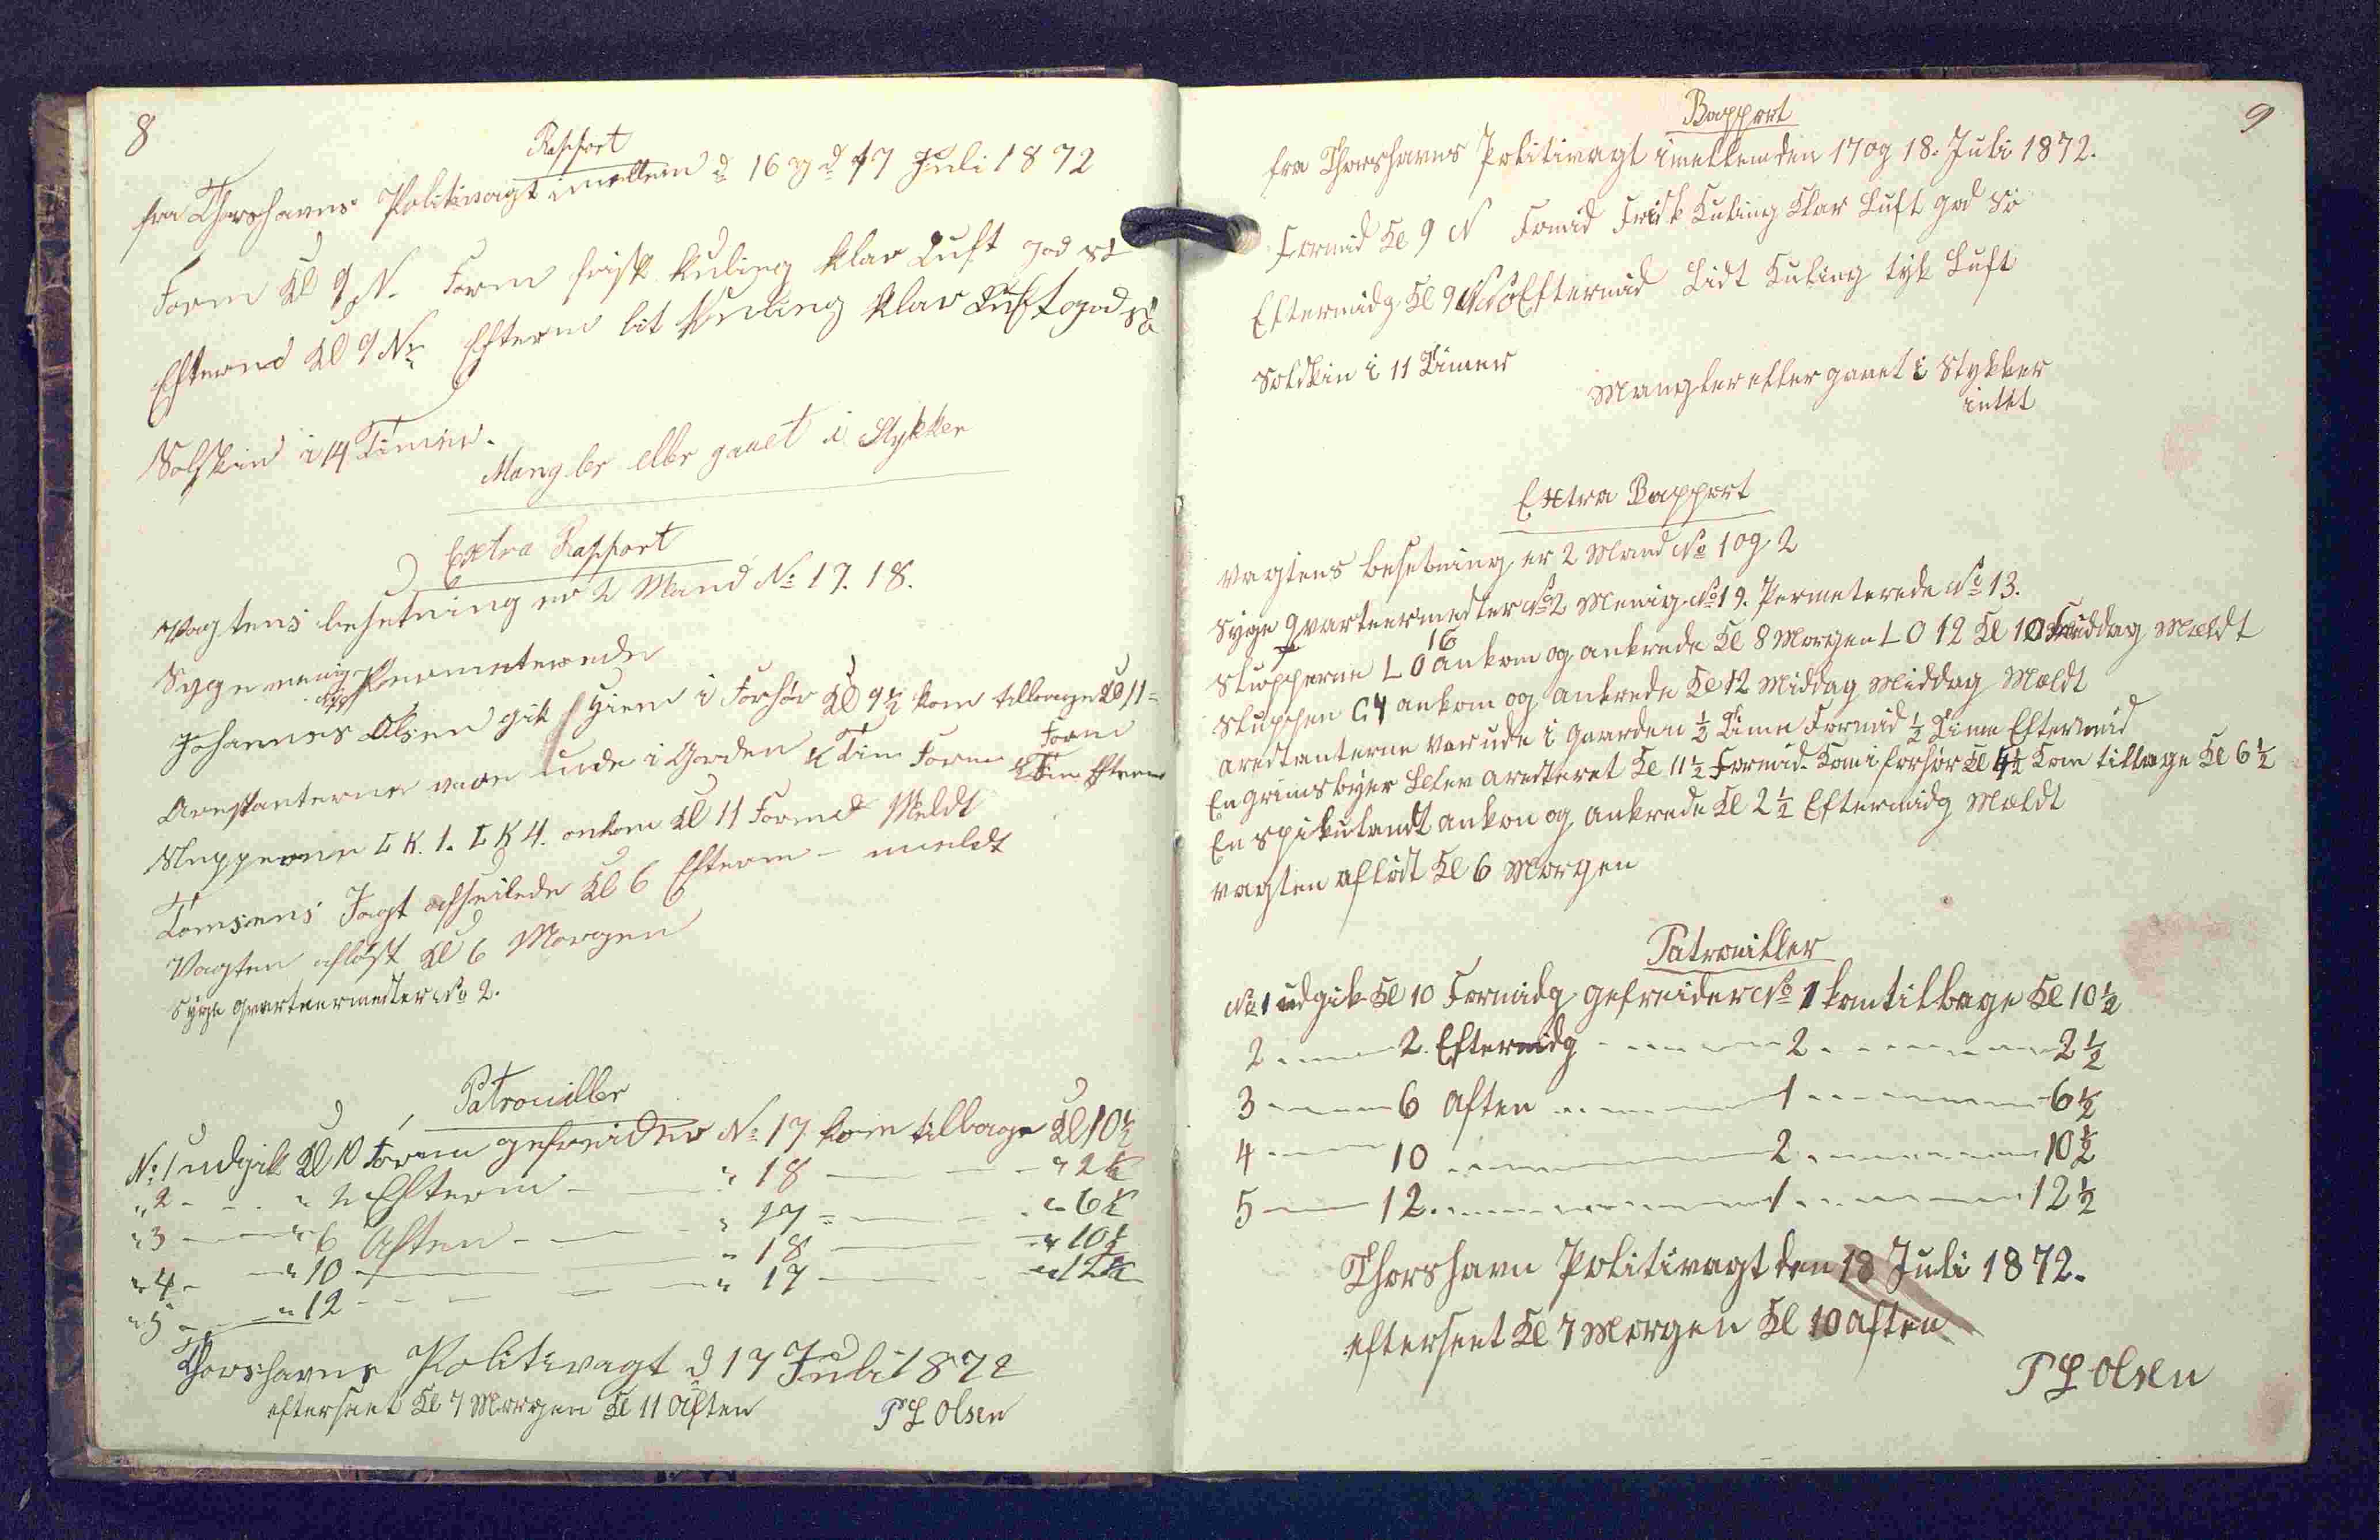 8
Rapport
fra Thorshavns Politivagt imellem d 16 og d 17 Juli 1872
Form Kl 9 N. Form frisk Kuling klar Luft god sø
Efterm Kl 9 N Efterm lit Kuling klar Luft god sø
Solskin i 14 Timer.
Mangler eller gaaet i Stykker
Extra Rapport
Vagtens besetning er 2 Mand No 17. 18.
Syge menig Permeterede
Johannes Olsen gik hiem i Forhør Kl 9½ kom tilbage Kl 11
Form
Arrestanterne vare ude i Gorden ½ Tim Form ½ Tim Efterm
Slupperne L K. 1. L K 4. ankom Kl 11 Formd Meldt
Tomsens Jagt afseilede Kl 6 Efterm - meldt
Vagten afløst Kl 6 Morgen
Syge qvarteermester No 2.
Patrouiller
No 1 udgik Kl 10 Form gefreider No 17 kom tilbage Kl 10½
" 2 - - " 2 Efterm - " 18 - " 2½
" 3 - " 6 Aften - " 17 - " 6½
" 4 - " 10 - " 18 - " 10½
" 5 - " 12 - " 17 - " 12½
Thorshavns Politivagt d 17 Juli 1872
efterseet Kl 7 Morgen Kl 11 Aften P L Olsen
9
Rapport
fra Thorshavns Politivagt imellem den 17 og 18. Juli 1872.
Formid Kl 9 N Formid Frisk Kuling Klar Luft god sø
Eftermidg Kl 9 Eftermid Lidt Kuling tyk Luft
Solskin i 11 Timer
Mangler eller gaaet i Stykker
intet
Extra Rapport
Vagtens besetning er 2 Mand No 1 og 2
Syge qvarteermester No 2 Menig No 19. Permeterede No 13.
Slupperne L O 16 ankom og ankrede Kl 8 Morgen L O 12 Kl 10 Mældt
Sluppen C 4 ankom og ankrede Kl 12 Middag Middag Mældt
arestanterne var ude i gaarden ½ Time Formid ½ Time Eftermid
En grimsbyer blev aresteret Kl 11½ Formid. Kom i forhør Kl 4½ Kom tilbage Kl 6½
En spikulandt ankom og ankrede Kl 2½ Eftermidg Mældt
vagten afløst Kl 6 Morgen
Patrouiller
No 1 udgik Kl 10 Formidg gefreider No 1 kom tilbage Kl 10½
2 - 2 Eftermidg - 2 - 2½
3 - 6 Aften - 1 - 6½
4 - 10 - 2 - 10½
5 - 12 - 1 - 12½
Thorshavn Politivagt den 18 Juli 1872.
efterseet Kl 7 Morgen Kl 10 aften
P L Olsen